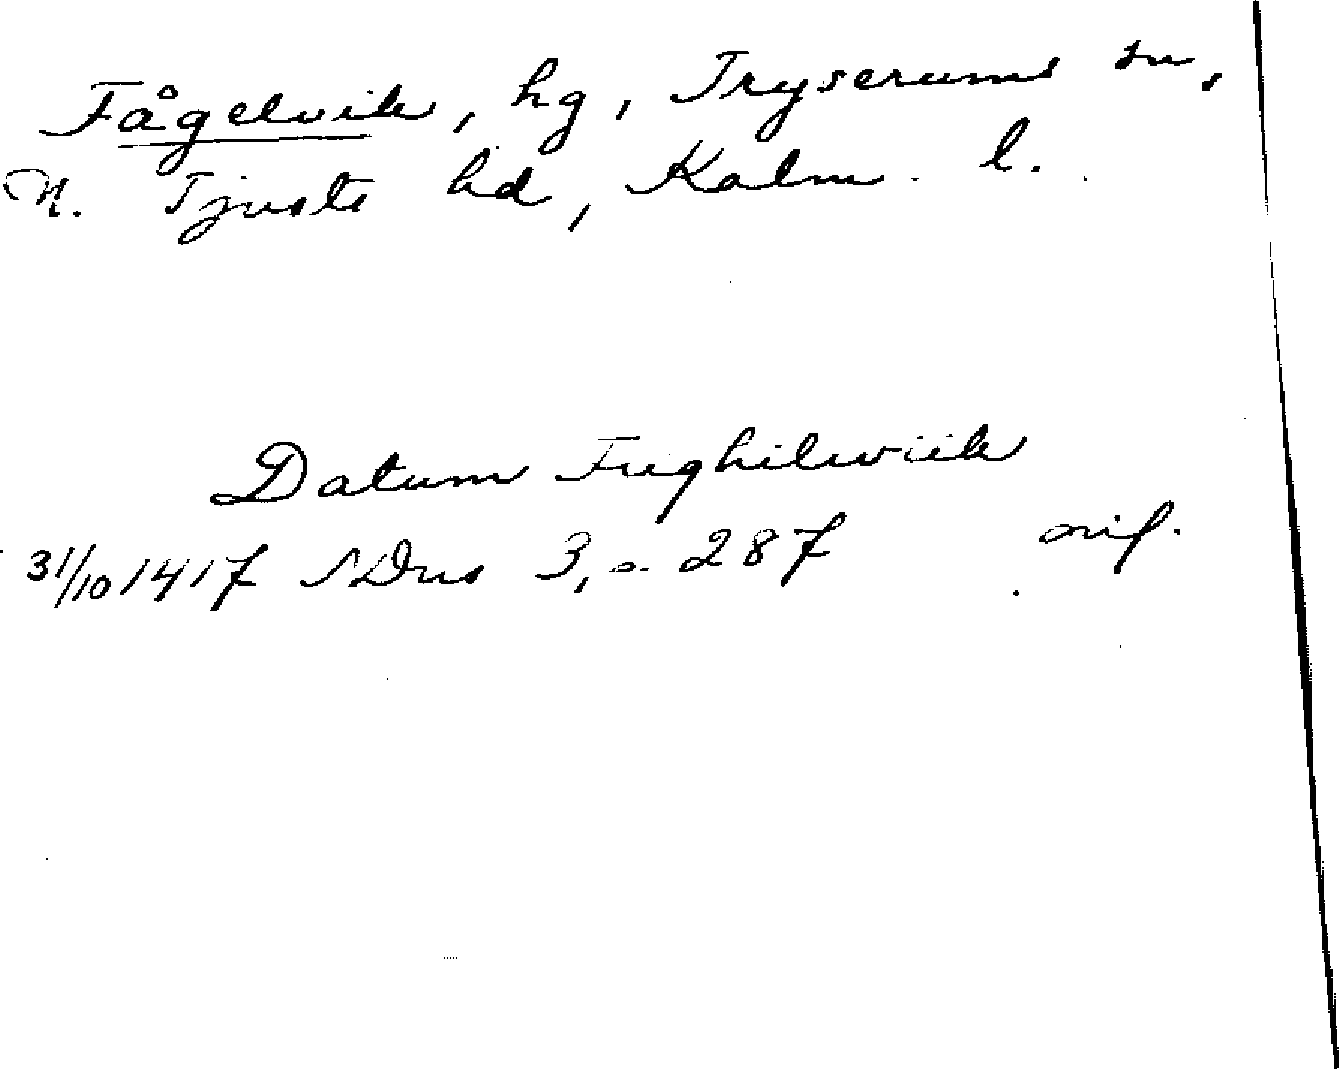 Fågelvik, hg, Tryserums sn,
N. Tjusts hd, Kalm. l.
Datum Fughilwiik
31/10 1417 SDns 3, s. 287 orig.